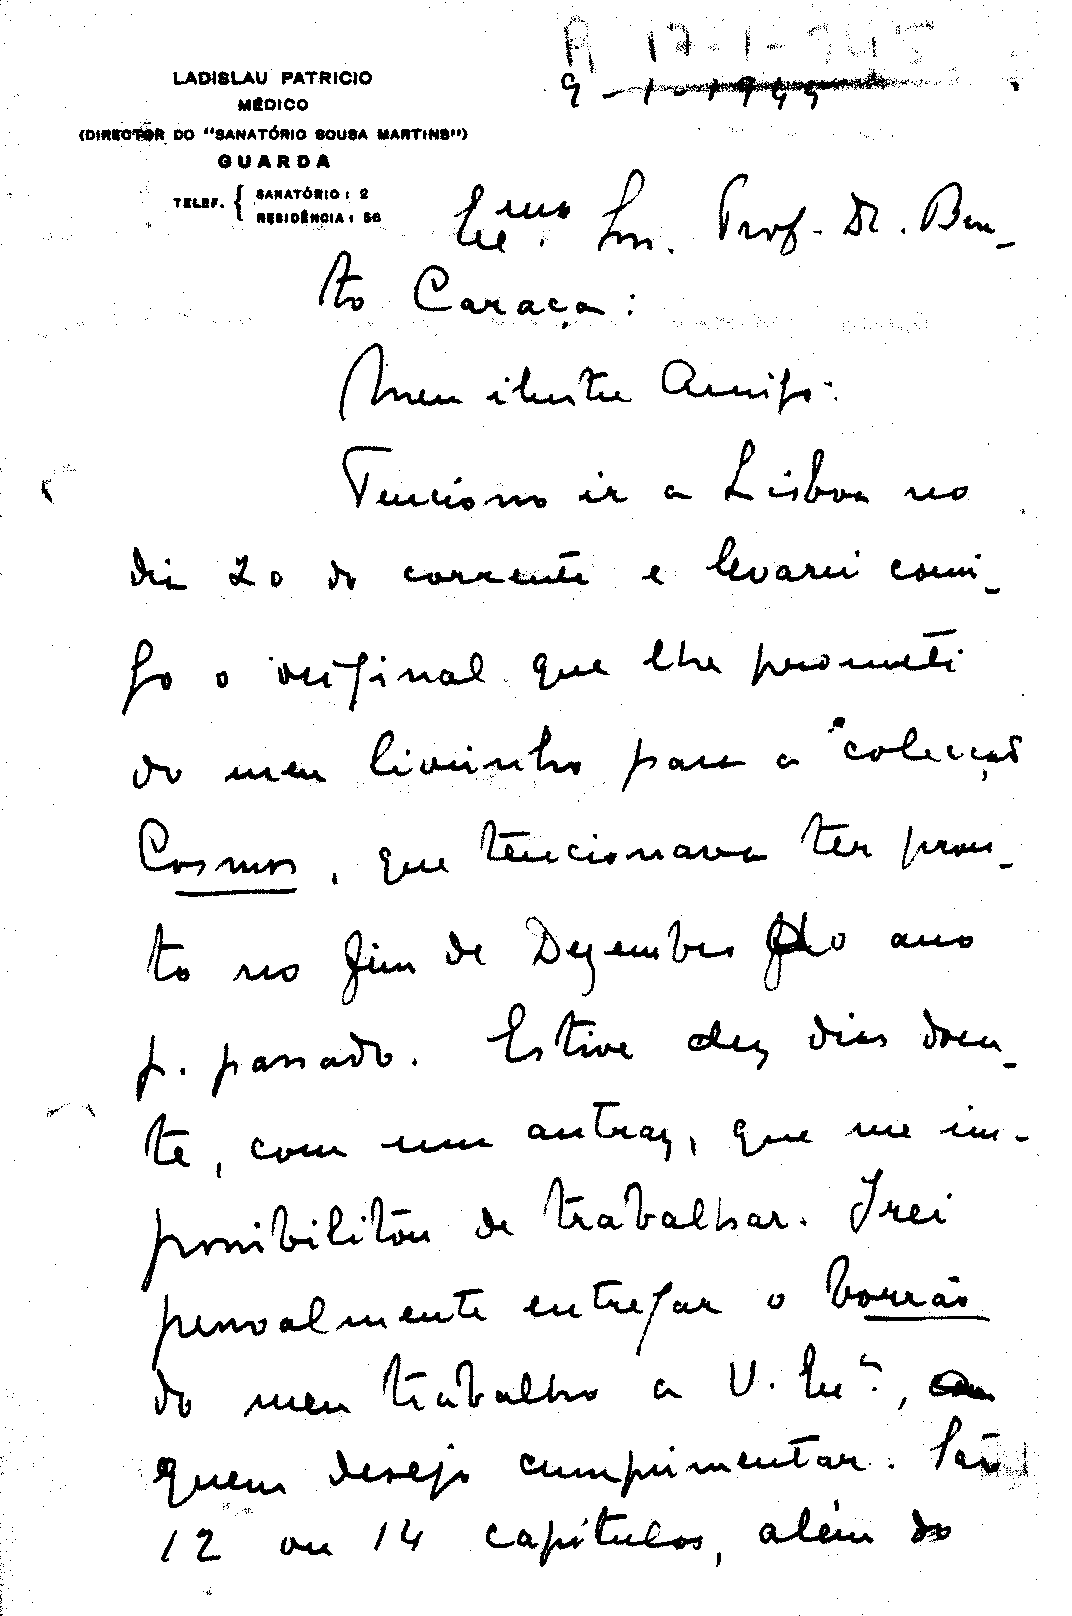 R 17-1-945
9-1-1945
LADISLAU PATRICIO
MÉDICO
(DIRECTOR DO "SANATÓRIO SOUSA MARTINS")
GUARDA
TELEF. { SANATÓRIO: 2
RESIDÊNCIA: 56
Exmo. Snr. Prof. Dr. Ben-
to Caraça:
Meu ilustre Amigo:
Tenciono ir a Lisboa no
dia 20 do corrente e levarei comi-
go o original que lhe prometi
do meu livrinho para a "colecção
Cosmos, que tencionava ter pron-
to no fim de Dezembro do ano
p. passado. Estive dez dias doen-
te, com um antraz, que me im-
possibilitou de trabalhar. Irei
pessoalmente entregar o borrão
do meu trabalho a V. Exª.,
quem desejo cumprimentar. São
12 ou 14 capítulos, além do